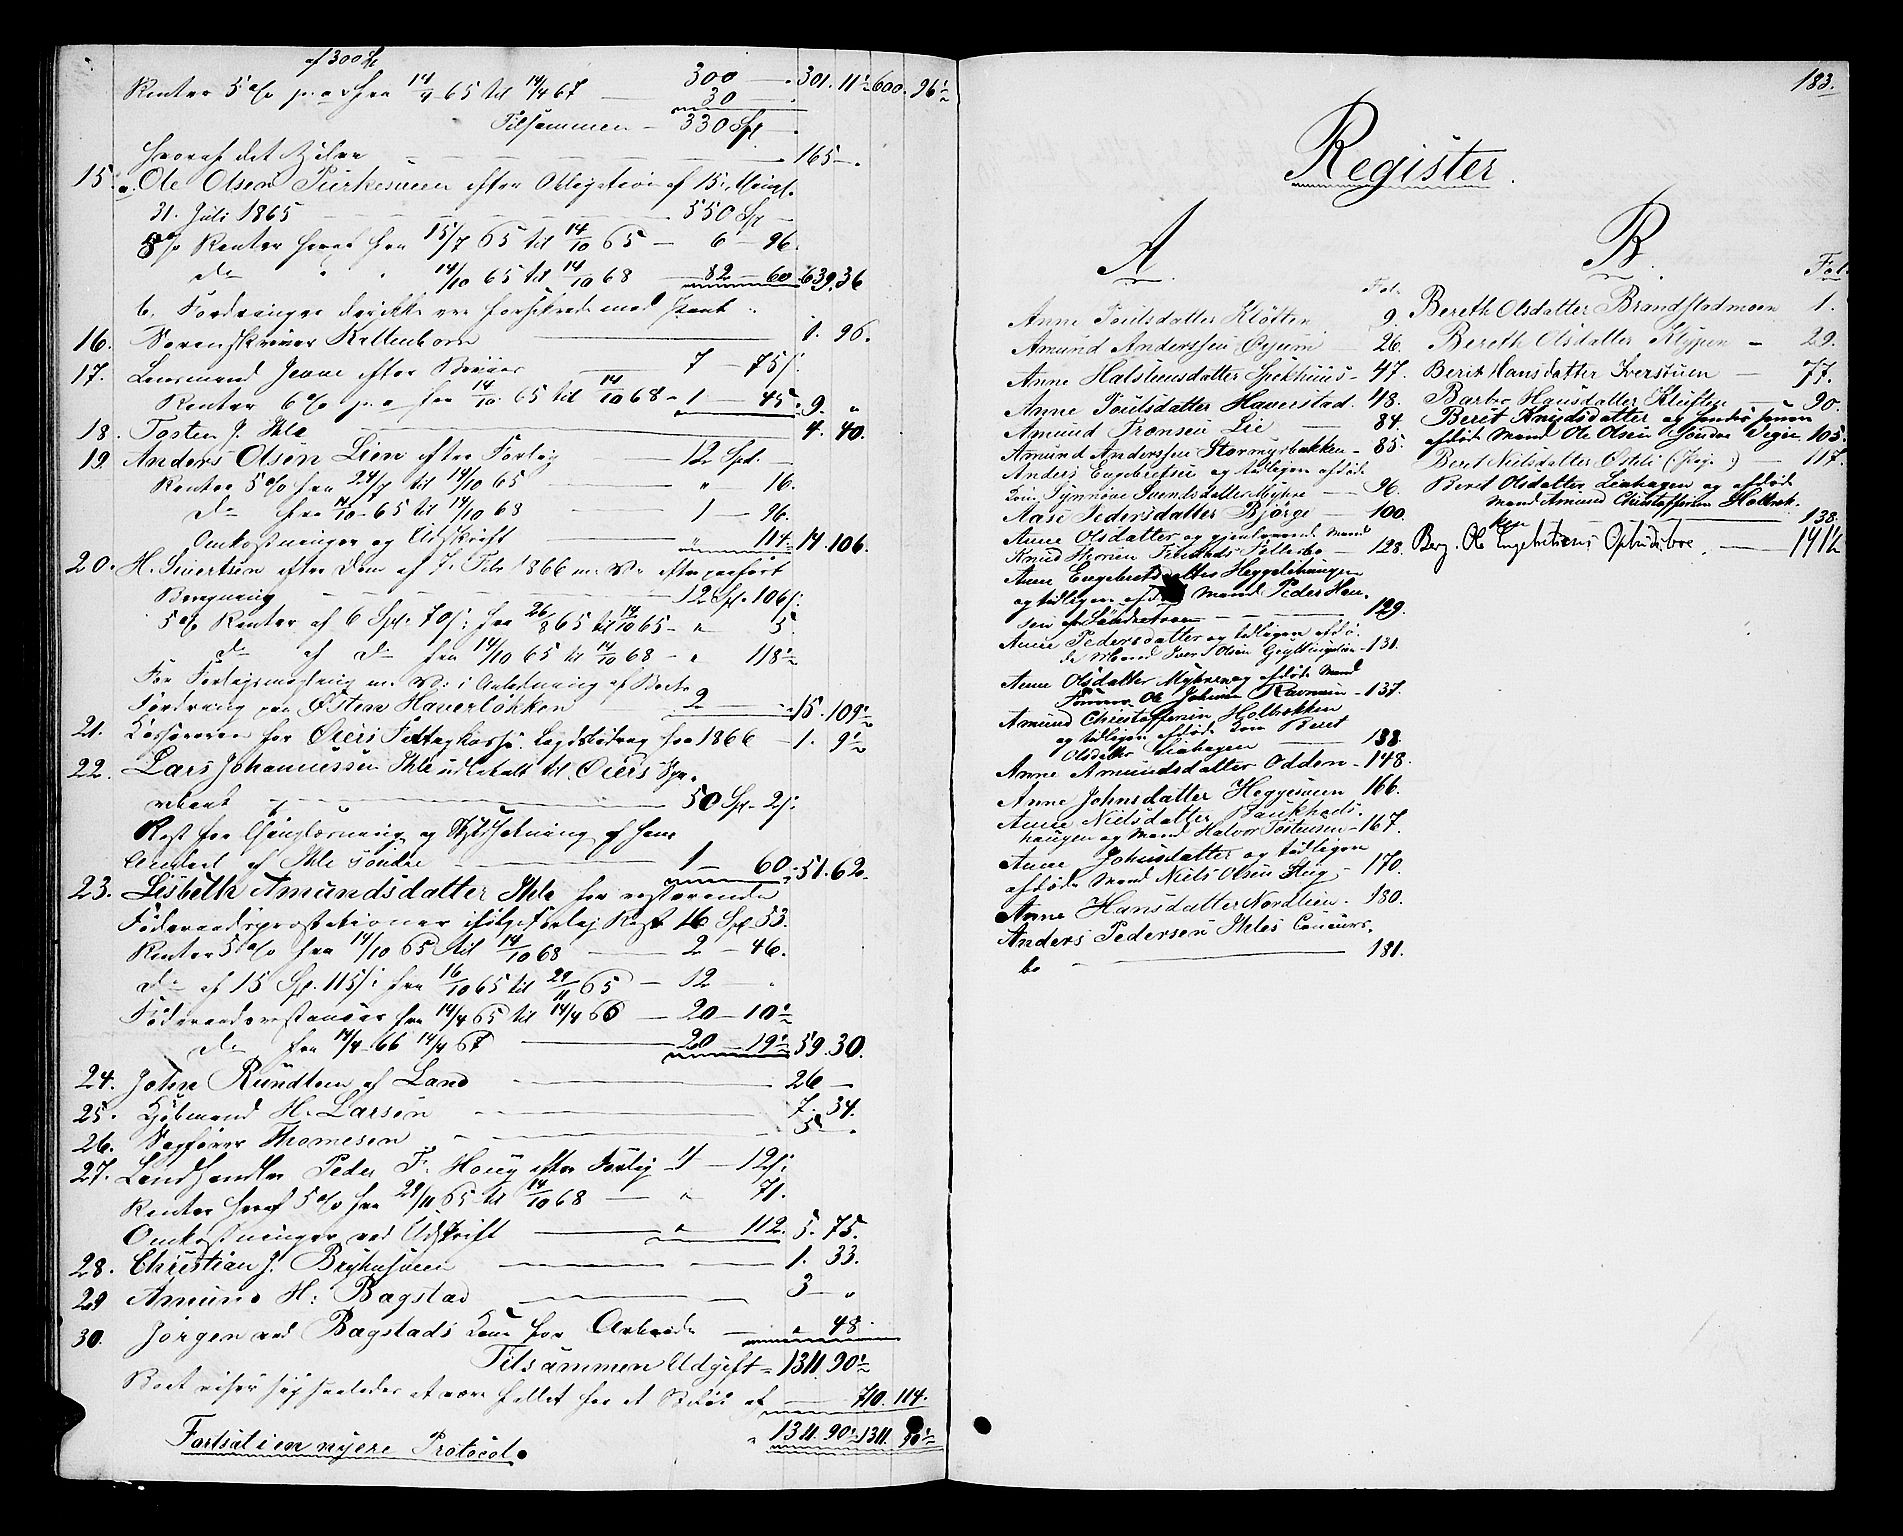 af 300 Sp
Renter 5 % p. a. fra 14/4 65 til 14/4 67 — 300 — 301. 11½ 600. 96½
30
Tilsammen — 330 Spl —
hvoraf det Halve — 165 —
15. a. Ole Olsen Purkesveen efter Obligation af 15
31. Juli 1865 — 550 Sp —
5 % Renter heraf fra 15/7 65 til 14/10 65 — 6 — 96.
do 14/10 65 til 14/10 68 — 82 — 60. 639. 36
b. Fordringer der ikke ere forsikrede med Pant
16. Sorenskriver Kaltenborn — 1. 96.
17. Lensmand efter — 7 — 75 s
Renter 6 % p. a. fra 14/10 65 til 14/10 68 — 1 — 45. 9. "
18. Tosten J. Ihle — 4. 40.
19. Anders Olsen Lien efter Forlig — 12 Spd. —
Renter 5 % fra 24/7 til 14/10 65 — " 16.
do fra 14/10 65 til 14/10 68 — 1 — 96.
Omkostninger og Udskrift — " 114. 14. 106.
20. H. Sivertsen efter Dom af 7. Febr 1866 m. V. efter
Beregning — 12 Spl. 106 s.
5 % Renter af 6 Spl. 70 s. fra 26/8 65 til 14/10 65 — " 5.
do af do fra 14/10 65 til 14/10 68 — " 118½
For m. V. i Anledning af Boets
Fordring paa Østen Haverløkken — 2 — 15. 109½
21. Kassereren for Øiers Fattigkasse. fra 1866 — 1. 9½
22. Lars Johannessen Ihle udbetalt til Øiers Spa-
rebank — 50 Sp. 2 s.
Rest for og af hans
af Ihle søndre — 1 — 60. 51. 62.
23. Lisbeth Amundsdatter Ihle for resterende
Føderaadspræstationer ifølge Forlig Rest 16 Sp. 53.
Renter 5 % fra 14/10 65 til 14/10 68 — 2 — 46.
do af 15 Spl. 115 s. fra 16/10 65 til 29/11 65 — 12
Føderaadsrestancer fra 14/4 65 til 14/4 66 — 20 — 10½
do fra 14/4 66 14/4 67 — 20 — 19½ 59. 30.
24. John Rundtom af Land — 26 —
25. Kjøbmand H. Larsen — 7. 34.
26. Sagfører Thomesen — 5 — "
27. Landhandler Peder F. Houg efter Forlig 4 — 12 s.
Renter heraf 5 % fra 29/11 65 til 14/10 68 — " 71.
Omkostninger ved Udskrift — " 112. 5. 75.
28. Christian J. Bryhusveen — 1. 33.
29 Amund H. Bagstad — 3 — "
30. Jørgen ved Bagstads Kone for Arbeide — " 48.
Tilsammen Udgift — 1311. 90½
Boet viser sig saaledes at være fallit for et Beløb af — 710. 114.
" 1311. 90½ 1311. 90½
Fortsat i en nyere Protocol.
183.
Register.
A.
Fol.
Anne Poulsdatter Kløtten 9.
Amund Anderssen Øyum — 26.
Anne Halsteinsdatter Spekhuus — 47.
Anne Poulsdatter Haverstad. 48.
Amund Tronsen Lie — 84.
Amund Anderssen Stormyrbakken — 85.
Anders Engebretsen og tidligere afdøde
Kone Synnøve Svendsdatter Myhre — 96.
Aase Pedersdatter Bjørge — 100.
Anne Olsdatter og gjenlevende Mand
Knud — 128.
Anne Engebretsdatter Heggelihaugen
og tidligere afdøde Mand Peder Han-
sen — 129.
Anne Pedersdatter og tidligere afdø-
de Mand Iver Olsen — 131.
Anne Olsdatter Myhren og afdøde Mand
Ole Johnsen — 137.
Amund Christoffersen Holbakken
og tidligere afdøde Kone Beret
Olsdatter Liahagen — 138.
Anne Amundsdatter Odden — 148.
Anne Johnsdatter Heggesveen 166.
Anne Nielsdatter
haugen og Mand Halvor Tostensen — 167.
Anne Johnsdatter og tidligere
afdøde Mand Niels Olsen Haug — 170.
Anne Hansdatter Nordlien. 180.
Anders Pedersen Ihles Concurs-
bo — 181.
B.
Fol.
Bereth Olsdatter Brandstadmoen 1.
Bereth Olsdatter Klypen — 29.
Berit Hansdatter Iverstuen — 77.
Barbo Hansdatter Kluften — 90.
Berit Knudsdatter og hendes forhen
afdøde Mand Ole Olsen Søndre 105.
Berit Nielsdatter Østeli — 117.
Beret Olsdatter Liahagen og afdøde
Mand Amund Christoffersen Holbak-
ken — 138.
Berg, Ole Engebretsens Opbudsbo. — 141½